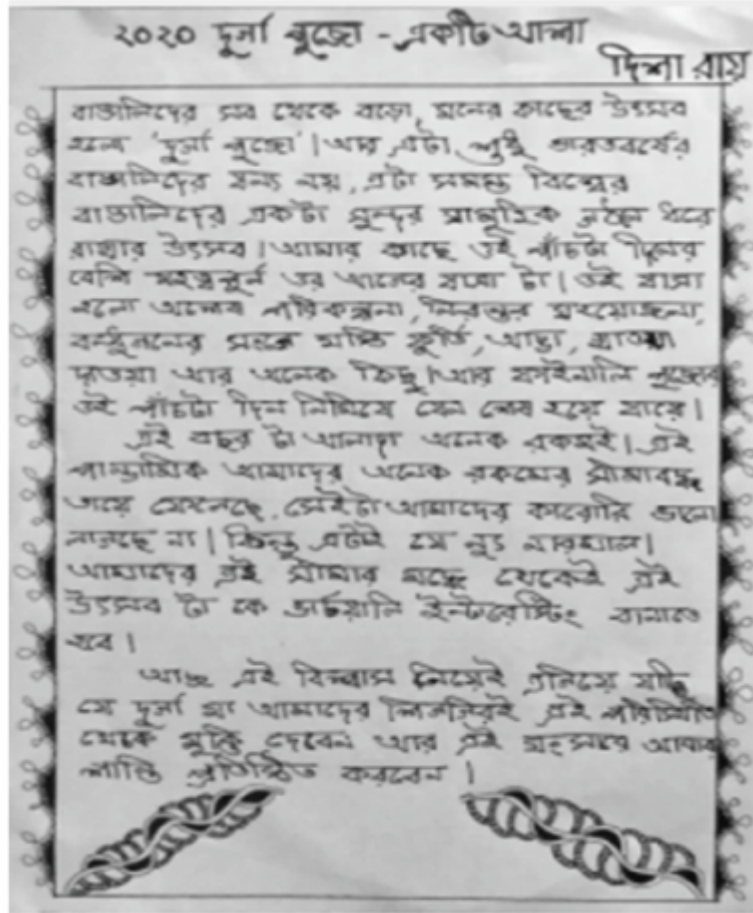 ২০২০ দুর্গা পুজো - একটি আশা
দিশা রায়
বাঙালিদের সব থেকে বড়ো, মনের কাছের উৎসব
হলো 'দুর্গা পুজো'। আর এটা শুধু ভারতবর্ষের
বাঙালিদের জন্য নয়, এটা সমস্ত বিশ্বের
বাঙালিদের একটা সুন্দর সামূহিক ধরে
রাখার উৎসব। আমার কাছে ওই পাঁচটা দিনের
বেশি মহত্বপূর্ন ওর আগের যাত্রা টা। ওই যাত্রা
হলো অশেষ পরিকল্পনা, নিরন্তর সংযোজনা,
বন্ধুগনের সঙ্গে মস্তি ফুর্তি, আড্ডা, খাওয়া
দাওয়া আর অনেক কিছু। আর ফাইনালি পুজোর
ওই পাঁচটা দিন নিমিষে যেন শেষ হয়ে যায়ে।
এই বছর টা আলাদা অনেক রকমই। এই
প্যান্ডামিক আমাদের অনেক রকমের সীমাবদ্ধ
ফেলেছে, সেইটা আমাদের কারোরি ভালো
লাগছে না। কিন্তু এটাই যে ন্যু নারমাল।
আমাদের এই সীমার মদ্ধে থেকেই এই
উৎসব টা কে ভার্চয়ালি ইন্টারেস্টিং বানাতে
হবে।
আজ এই বিশ্বাস নিয়েই এগিয়ে যাচ্ছি
যে দুর্গা মা আমাদের এই পরিস্থিতি
থেকে মুক্তি দেবেন আর এই সংসারে আবার
শান্তি প্রতিষ্ঠিত করবেন।